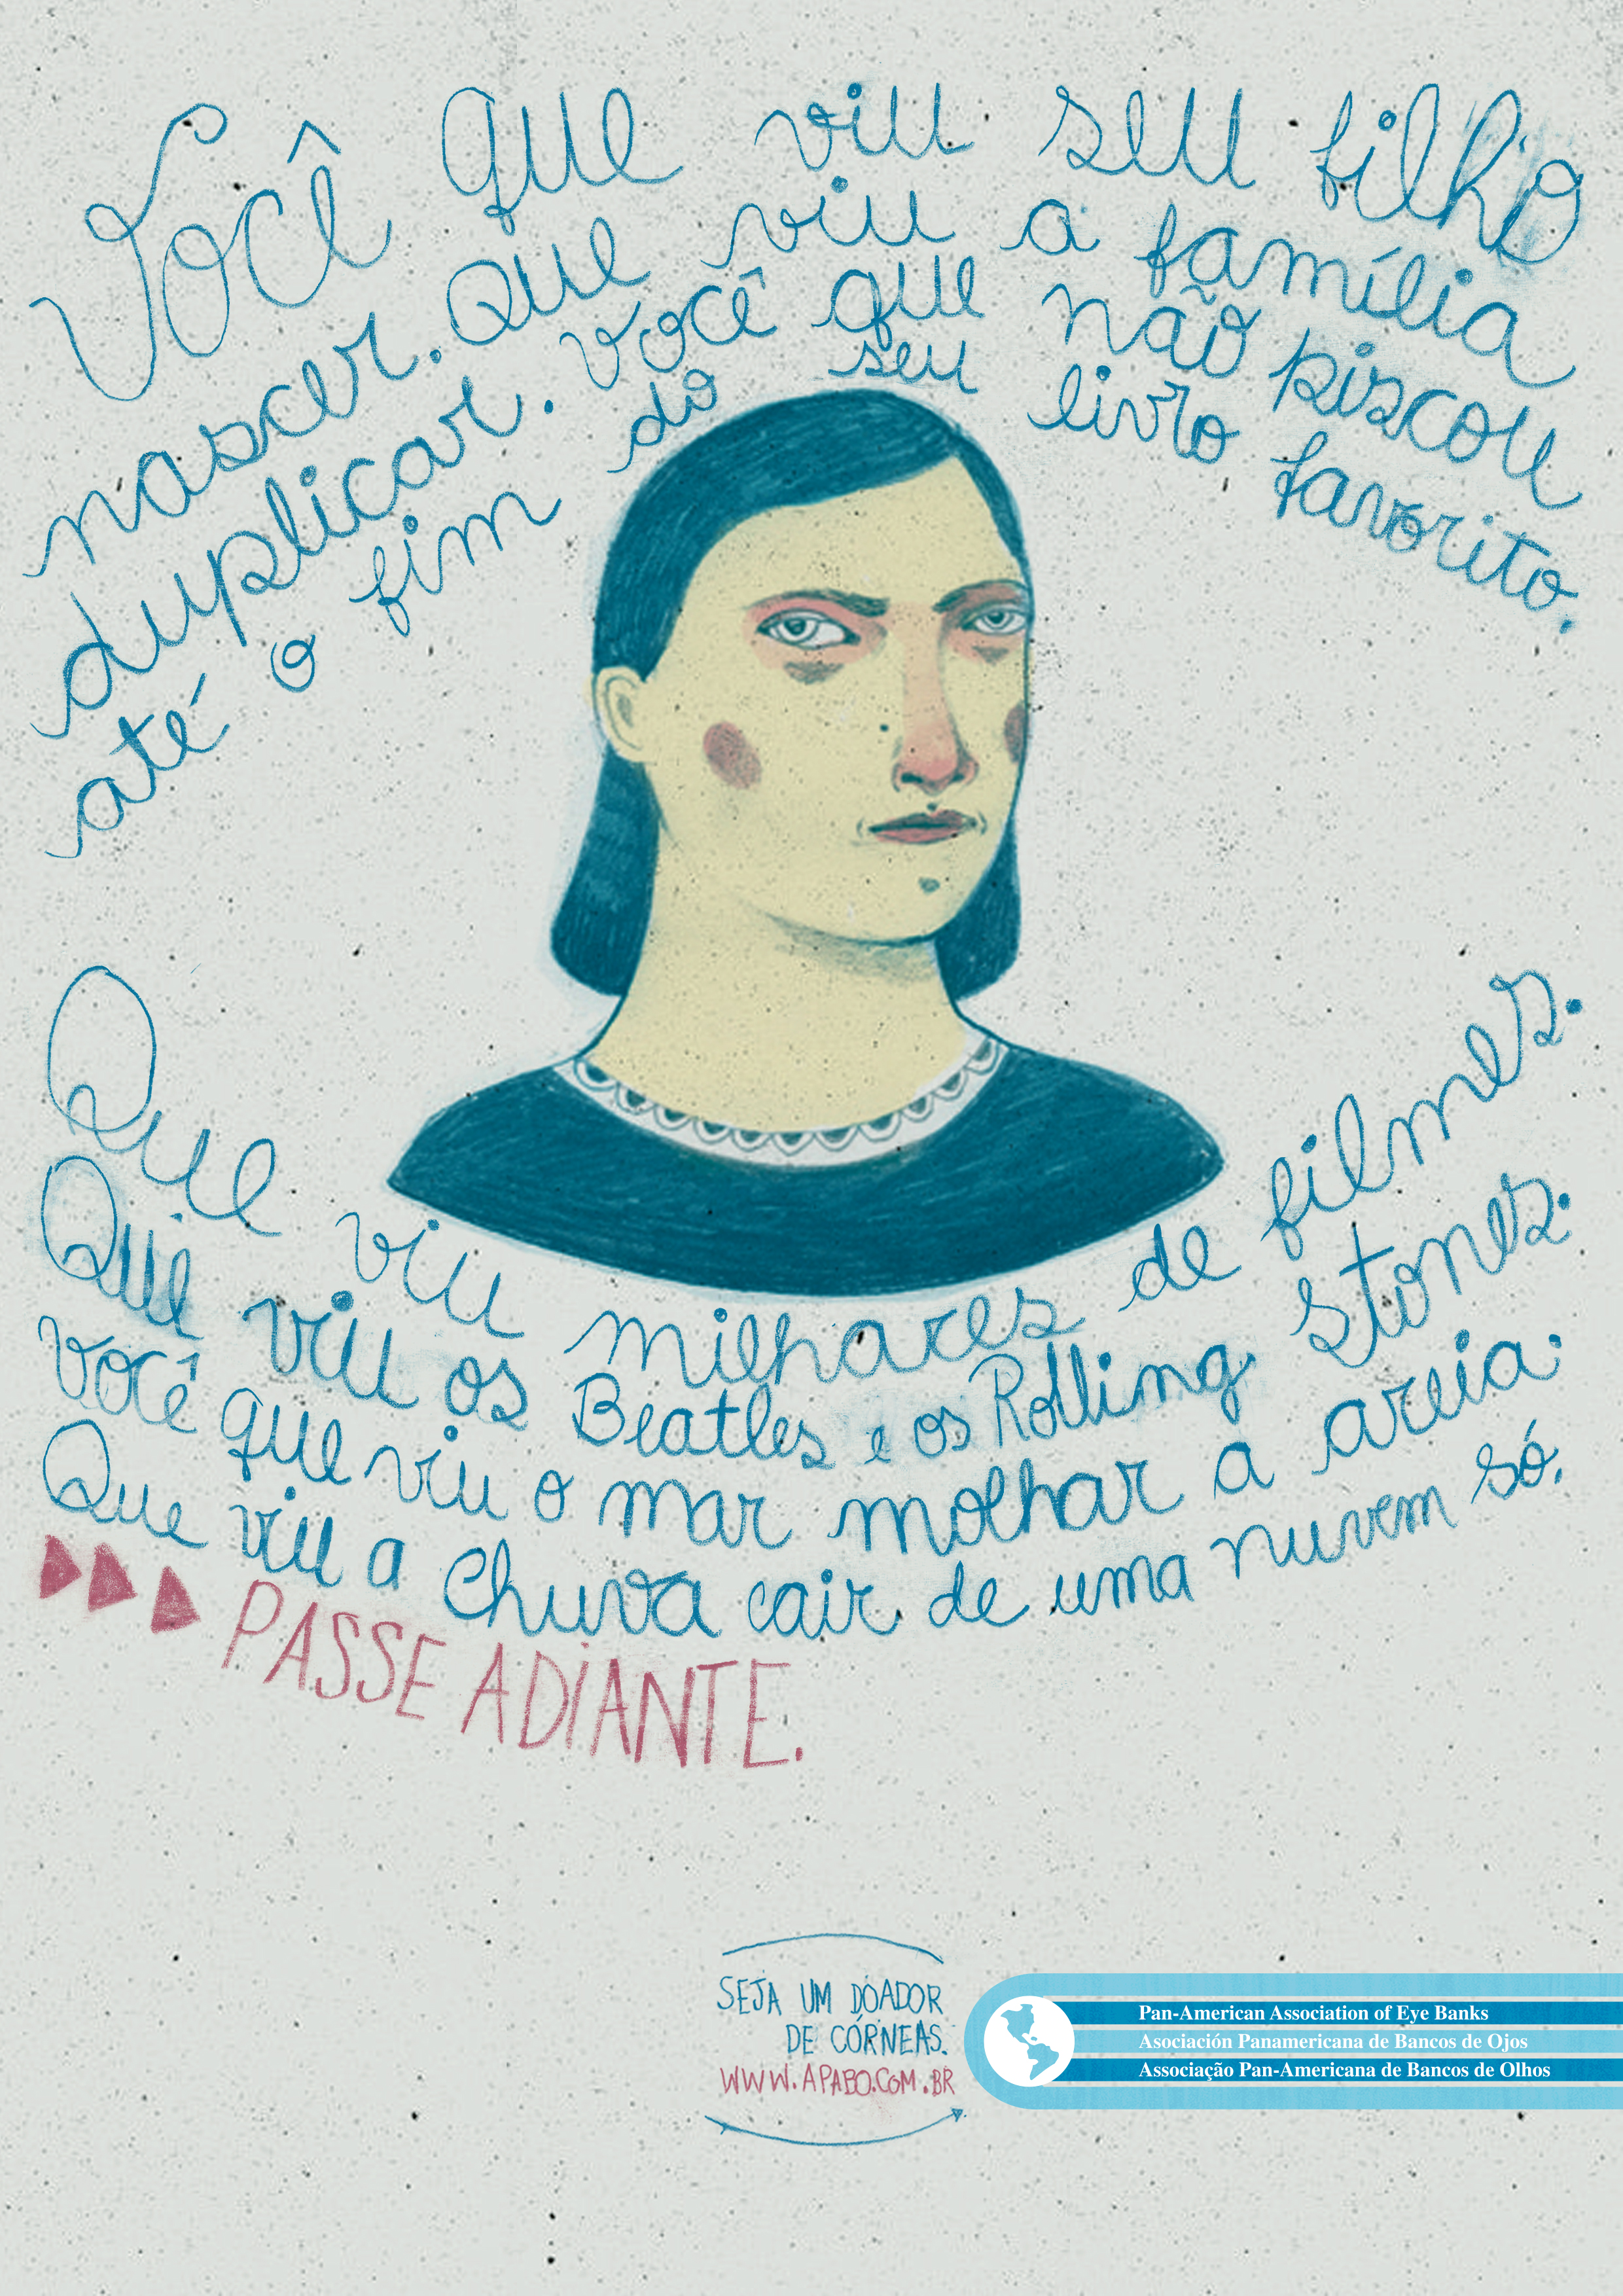 Você que viu seu filho
nascer. Que viu a família
duplicar. Você que não piscou
até o fim do seu livro favorito.
Que viu milhares de filmes.
Que viu os Beatles e os Rolling Stones.
Você que viu o mar molhar a areia.
Que viu a chuva cair de uma nuvem só.
PASSE ADIANTE.
SEJA UM DOADOR
DE CÓRNEAS.
WWW.APABO.COM.BR
Pan-American Association of Eye Banks
Asociación Panamericana de Bancos de Ojos
Associação Pan-Americana de Bancos de Olhos